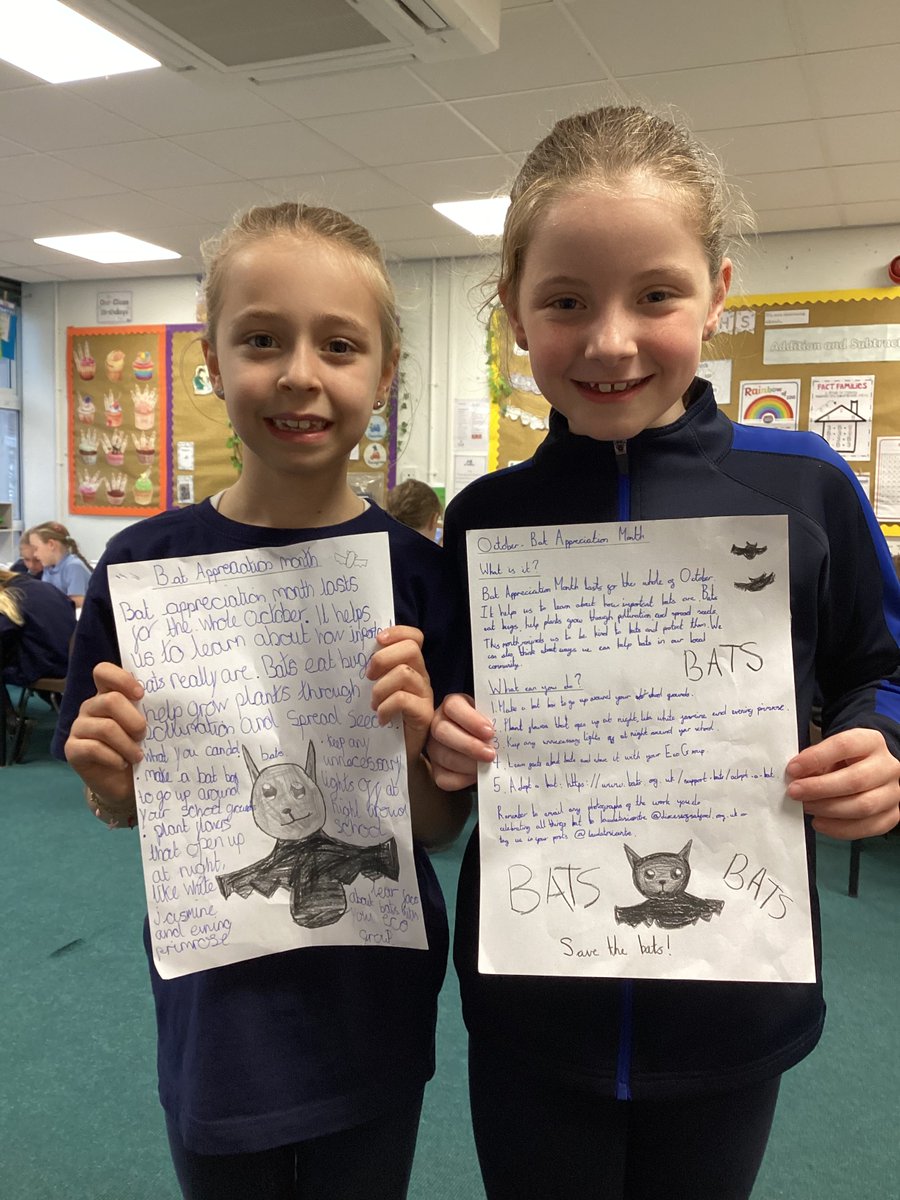 Our Class
Birthdays
Addition and Subtraction
Rainbow
FACT FAMILIES
Bat Appreciation month
Bat appreciation month lasts
for the whole October. It helps
us to learn about how
bats really are. Bats eat bugs
help grow plants through
pollination and spread seeds
what you can do
make a bat box
to go up around
your school ground
plant flowers
that open up
at night,
like white
jasmine
and evning
primrose
bats
keep any
unnecessary
lights off at
night around
school
about bats with
your eco
group
October. Bat Appreciation Month
What is it?
Bat Appreciation Month lasts for the whole of October.
It helps us to learn about how important bats are. Bats
eat bugs, help plants grow through pollination and spread seeds.
This month reminds us to be kind to bats and protect them. We
can also think about ways we can help bats in our local
community.
BATS
What can you do?
1. Make a bat box to go up around your school grounds.
2. Plant flowers that open up at night, like white jasmine and evening primrose.
3. Keep any unnecessary lights off at night around your school.
4. Learn facts about bats and share it with your Eco Group.
5. Adopt a bat. https://www.bats.org.uk/support-bats/adopt-a-bat
Remember to email any photographs of the work you do
celebrating all things bat to
tag us in your posts
BATS
BATS
Save the bats!